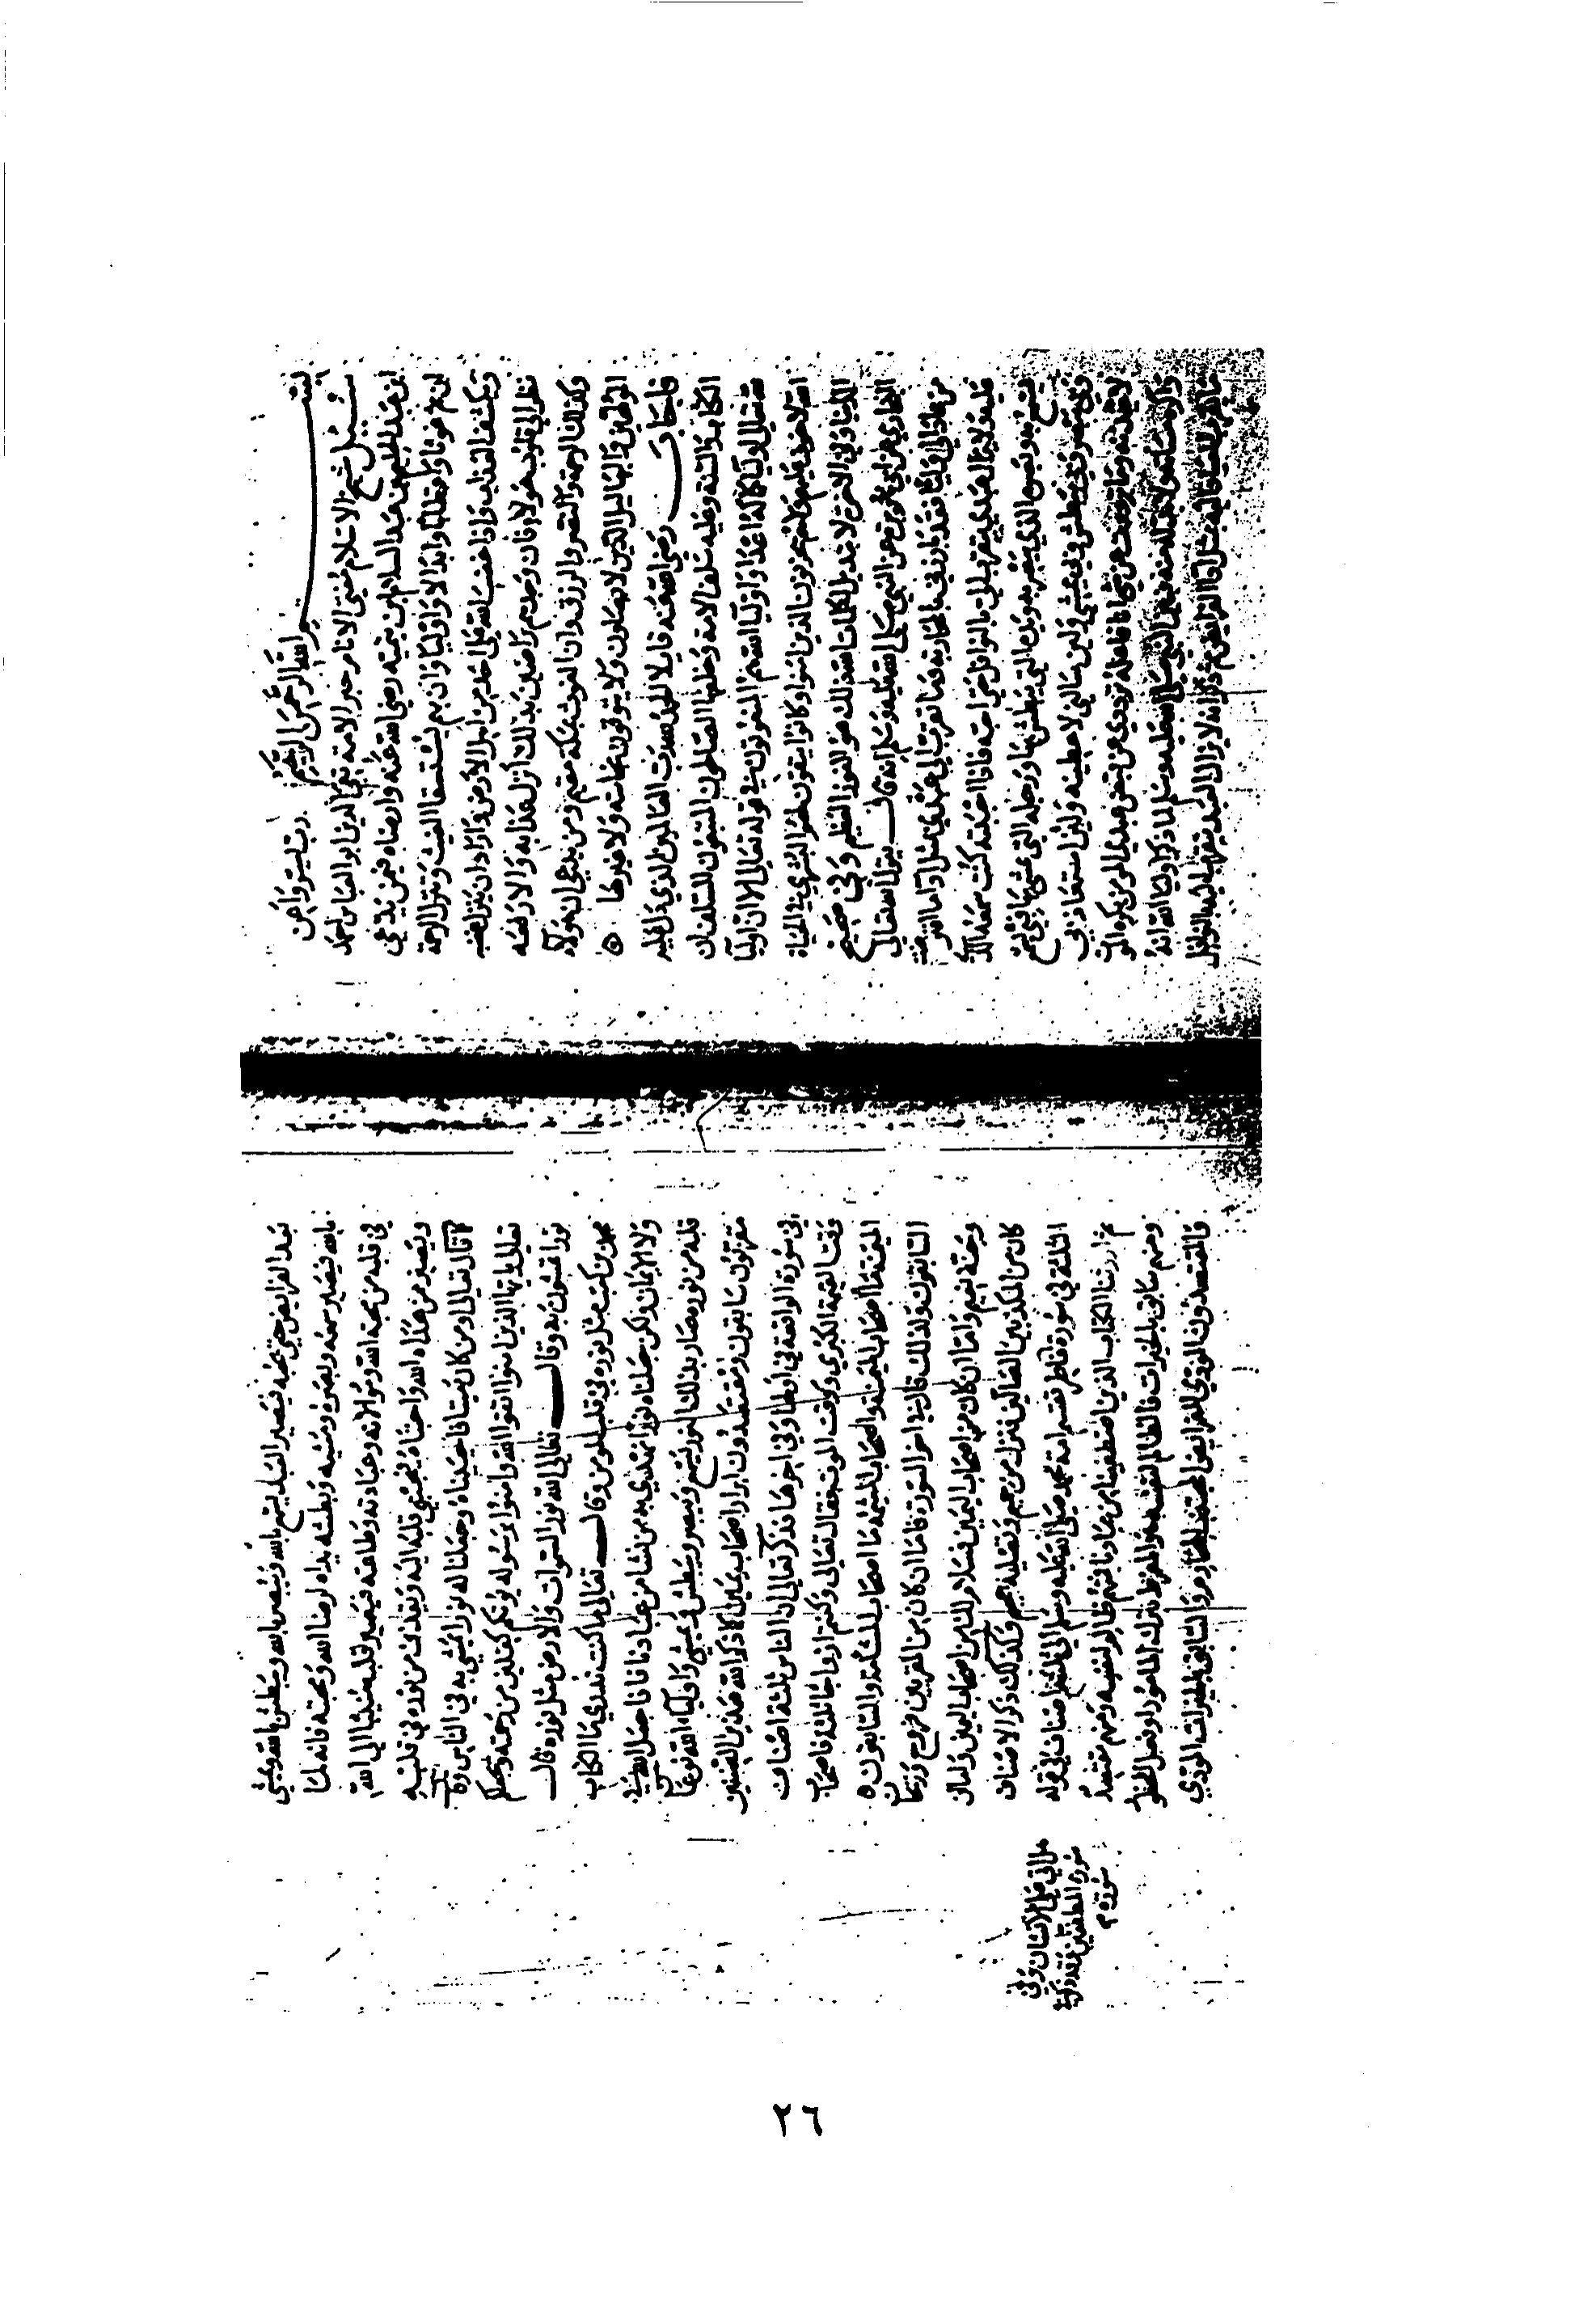 بسم الله الرحمن الرحيم رب يسر واعن
سئل شيخ الاسلام مفتي الانام حبر الامة تقي الدين ابو العباس احمد
ابن عبد الحليم بن عبد السلام ابن تيمية رضي الله عنه وارضاه فيمن يدعي
ان ثم غوثا واقطابا وابدالا واوليا وان بهم يستسقا الغيث وتنزل الرحمة
وتكشف العذاب واذا غضب الله على احد من اهل الارض واراد ان ينزل عليه
نظر الى قلوب هولاء فان وجدهم راضين بذلك انزل عذابه والا رفعه
وكذلك الرحمة والنصر والرزق وان الغوث بمكة مقيم ومن يدعي ان هولاء
المولهين والبهاليل الذين لا يصلون ولا يتوقون نجاسة ولا غيرها
فاجاب رضي الله عنه قايلا الحمد لله رب العالمين الذي دل عليه
الكتاب والسنة وعليه سلف الامة وخلفها الصالحون المتبعون للسلف ان
لله تعالى اولياء كما له اعداء واولياء الله هم المنعوتون في قوله تعالى الا ان اوليا
الله لا خوف عليهم ولا هم يحزنون الذين امنوا وكانوا يتقون لهم البشرى في الحياة
الدنيا وفي الاخرة لا تبديل لكلمات الله ذلك هو الفوز العظيم وفي صحيح
البخاري عن ابي هريرة عن النبي صلى الله عليه وسلم انه قال يقول الله تعالى
من عادى لي وليا فقد بارزني بالمحاربة وما تقرب الي عبدي بمثل اداء ما افترضت
عليه ولا يزال عبدي يتقرب الي بالنوافل حتى احبه فاذا احببته كنت سمعه الذي
يسمع به وبصره الذي يبصر به ويده التي يبطش بها ورجله التي يمشي بها فبي يسمع
وبي يبصر وبي يبطش وبي يمشي ولين سالني لاعطينه ولين استعاذ بي
لاعيذنه وما ترددت عن شي انا فاعله ترددي عن قبض عبدي المومن يكره الموت
واكره مساته ولا بد له منه فبين النبي صلى الله عليه وسلم لما ذكر اولياء الله انه
بعد الفرايض حتى يحبه فيصير العبد يسمع بالله ويبصر بالله ويبطش بالله ويمشي
بالله فيصير سمعه وبصره ومشيه وبطشه بداه لرضا الله ومحبته فانه لما
في قلبه من محبة الله وموالاته وعبادته وطاعته فيصير قلبه منيبا الى الله
ويصير من هداه الله واجتباه فيجتبي قلبه اليه ويقذف من نوره في قلبه
كما قال تعالى اومن كان ميتا فاحييناه وجعلنا له نورا يمشي به في الناس وقال
تعالى يا ايها الذين امنوا اتقوا الله وامنوا برسوله يوتكم كفلين من رحمته ويجعل لكم
نورا تمشون به وقال تعالى الله نور السموات والارض مثل نوره قال
ابي بن كعب مثل نوره في قلب المومن وقال تعالى ما كنت تدري ما الكتاب
ولا الايمان ولكن جعلناه نورا نهدي به من نشا من عبادنا فاذا جعل الله في
قلبه من نوره صار بذلك النور يسمع ويبصر ويبطش ويمشي واولياء الله نوعان
مقربون سابقون ومقتصدون ابرار اصحاب يمين كما ذكر الله هذين القسمين
في سورة الواقعة في اولها وفي اخرها فذكر تعالى ان الناس ثلثة اصناف
وقت القيمة الكبرى ووقت الموت فقال تعالى وكنتم ازواجا ثلثة فاصحاب
الميمنة ما اصحاب الميمنة واصحاب المشئمة ما اصحاب المشئمة والسابقون
السابقون ولذلك قال في اخر السورة فاما ان كان من المقربين فروح وريحان
وجنة نعيم واما ان كان من اصحاب اليمين فسلام لك من اصحاب اليمين واما ان
كان من المكذبين الضالين فنزل من حميم وتصلية جحيم وكذلك ذكر الاصناف
الثلثة في سورة فاطر فقسم امة محمد صلى الله عليه وسلم الى ثلثة اصناف في قوله
ثم اورثنا الكتاب الذين اصطفينا من عبادنا فمنهم ظالم لنفسه ومنهم مقتصد
ومنهم سابق بالخيرات فالظالم لنفسه هو المفرط بترك المامور او فعل المحظور
والمقتصدون المودي للفرايض المجتنب المحارم والسابق بالخيرات المودي
هل اتى على الانسان وفي
سورة المطففين فقد ذكر في
سورة
٢٦